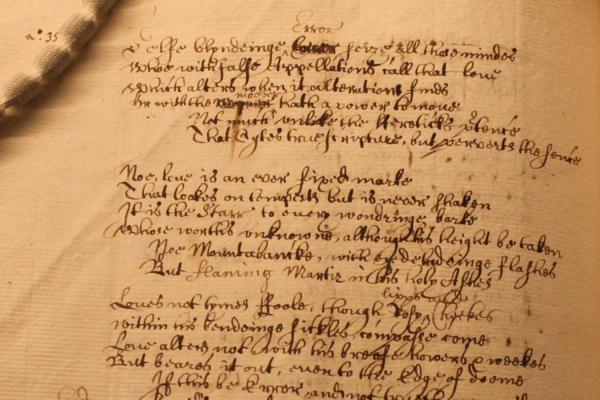 Error
n°. 35
Selfe blyndeinge seize all those mindes
Who with false Appellations call that love
Which alters when it alterations finds
moover
Or with the hath a power to move
Not much unlike the Hereticks ptence
That Cytes true scripture, but perverts the sence
Noe, love is an ever fixed marke
That lookes on tempests but is never shaken
It is the Starr to every wondringe barke
Whose worth's unknowne, although his height be taken
Noe Mountabancke, with eye deludeinge flashes
But flaming Martir in his holy Ashes
lipps and
Loves not tymes Foole, though Rosy Cheekes
within his bendeinge sickles compasse come
Love alters not with his breefe howers & weekes
But beares it out, even to the Edge of doome
If this be Error, and not